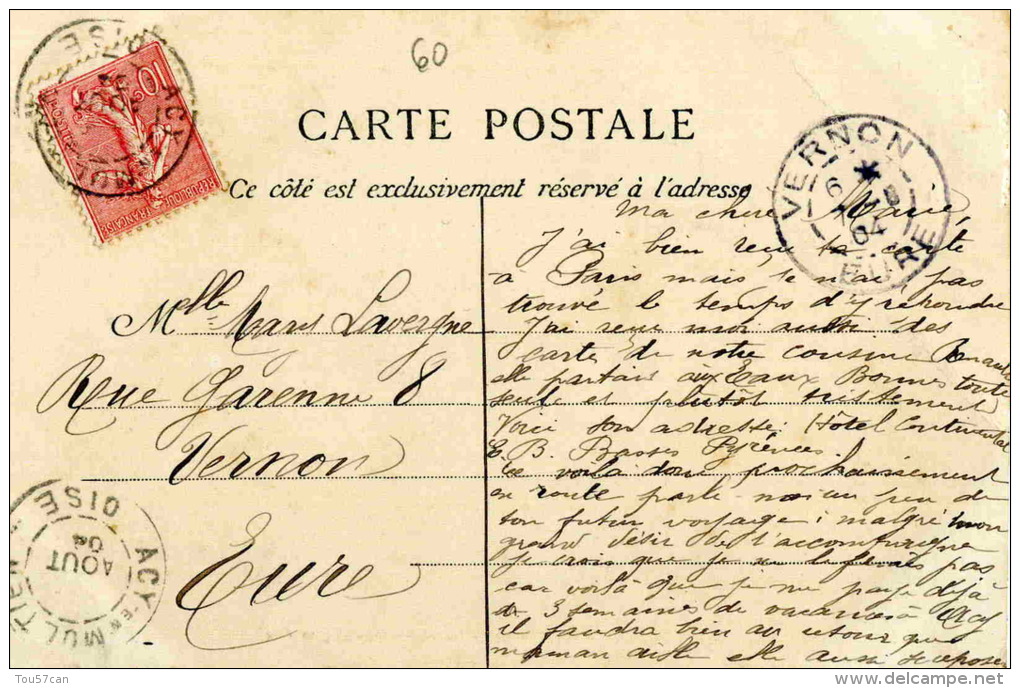 60
CARTE POSTALE
Ce côté est exclusivement réservé à l'adresse
10c
POSTES
REPUBLIQUE FRANÇAISE
ACY EN MULTIEN
OISE
VERNON
6
04
EURE
Melle Marie Lavergne
Rue Garenne 8
Vernon
Eure
ACY EN MULTIEN
OISE
AOUT
04
Ma chère Marie,
J'ai bien reçu ta carte
à Paris mais je n'ai pas
trouvé le temps d'y répondre
J'ai reçu moi aussi des
cartes de notre cousine
elle partait aux Eaux Bonnes toute
seule et plutôt tristement
Voici son adresse : Hôtel Continental
E. B. Basses Pyrénées.
te voilà donc prochainement
en route parle-moi un peu de
ton futur voyage ; malgré mon
grand désir de t'accompagner
je crois que je ne le ferais pas
car voilà que je me paye déjà
3 semaines de vacances à Acy
il faudra bien au retour que
maman aille elle aussi se reposer
Tou57can